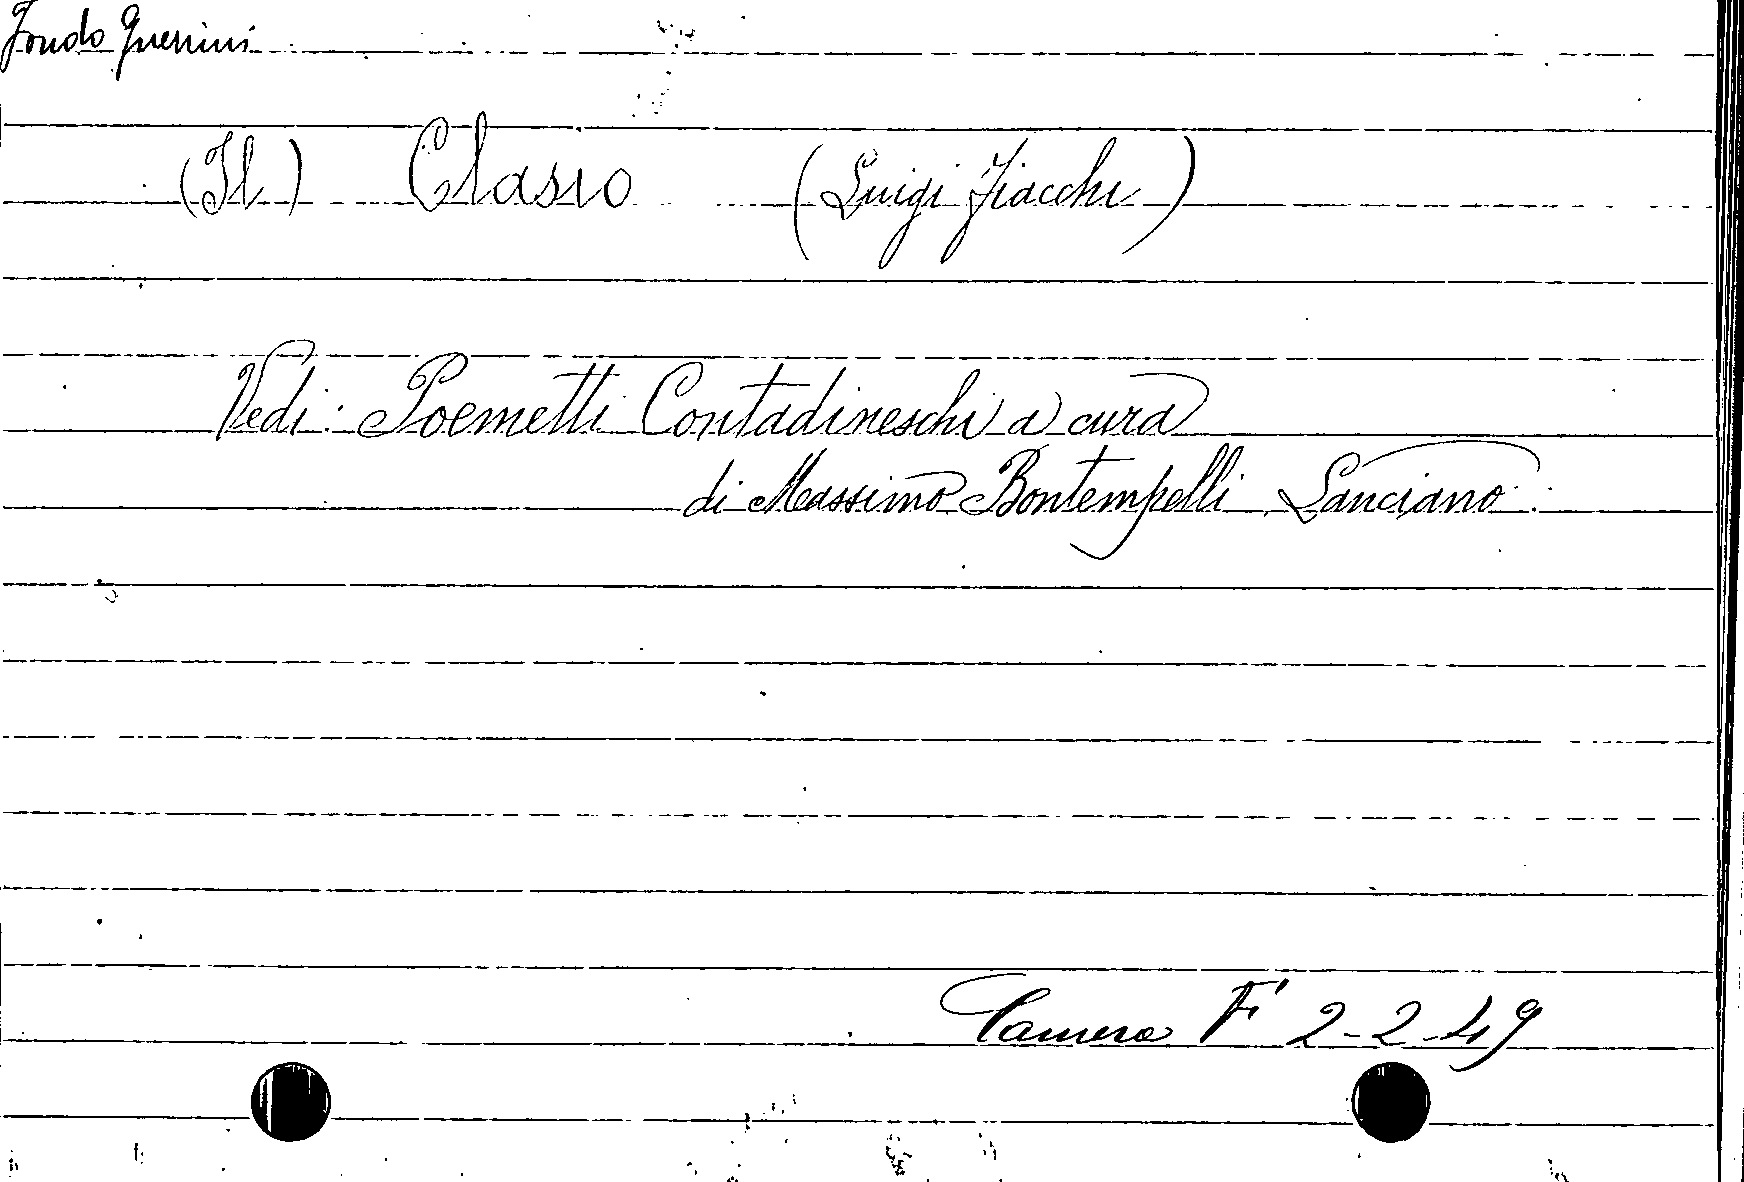 Fondo Guerrini
(Il) Clasio (Luigi Fiacchi)
Vedi: Poemetti Contadineschi a cura
di Massimo Bontempelli Lanciano.
Camera F 2-2-49